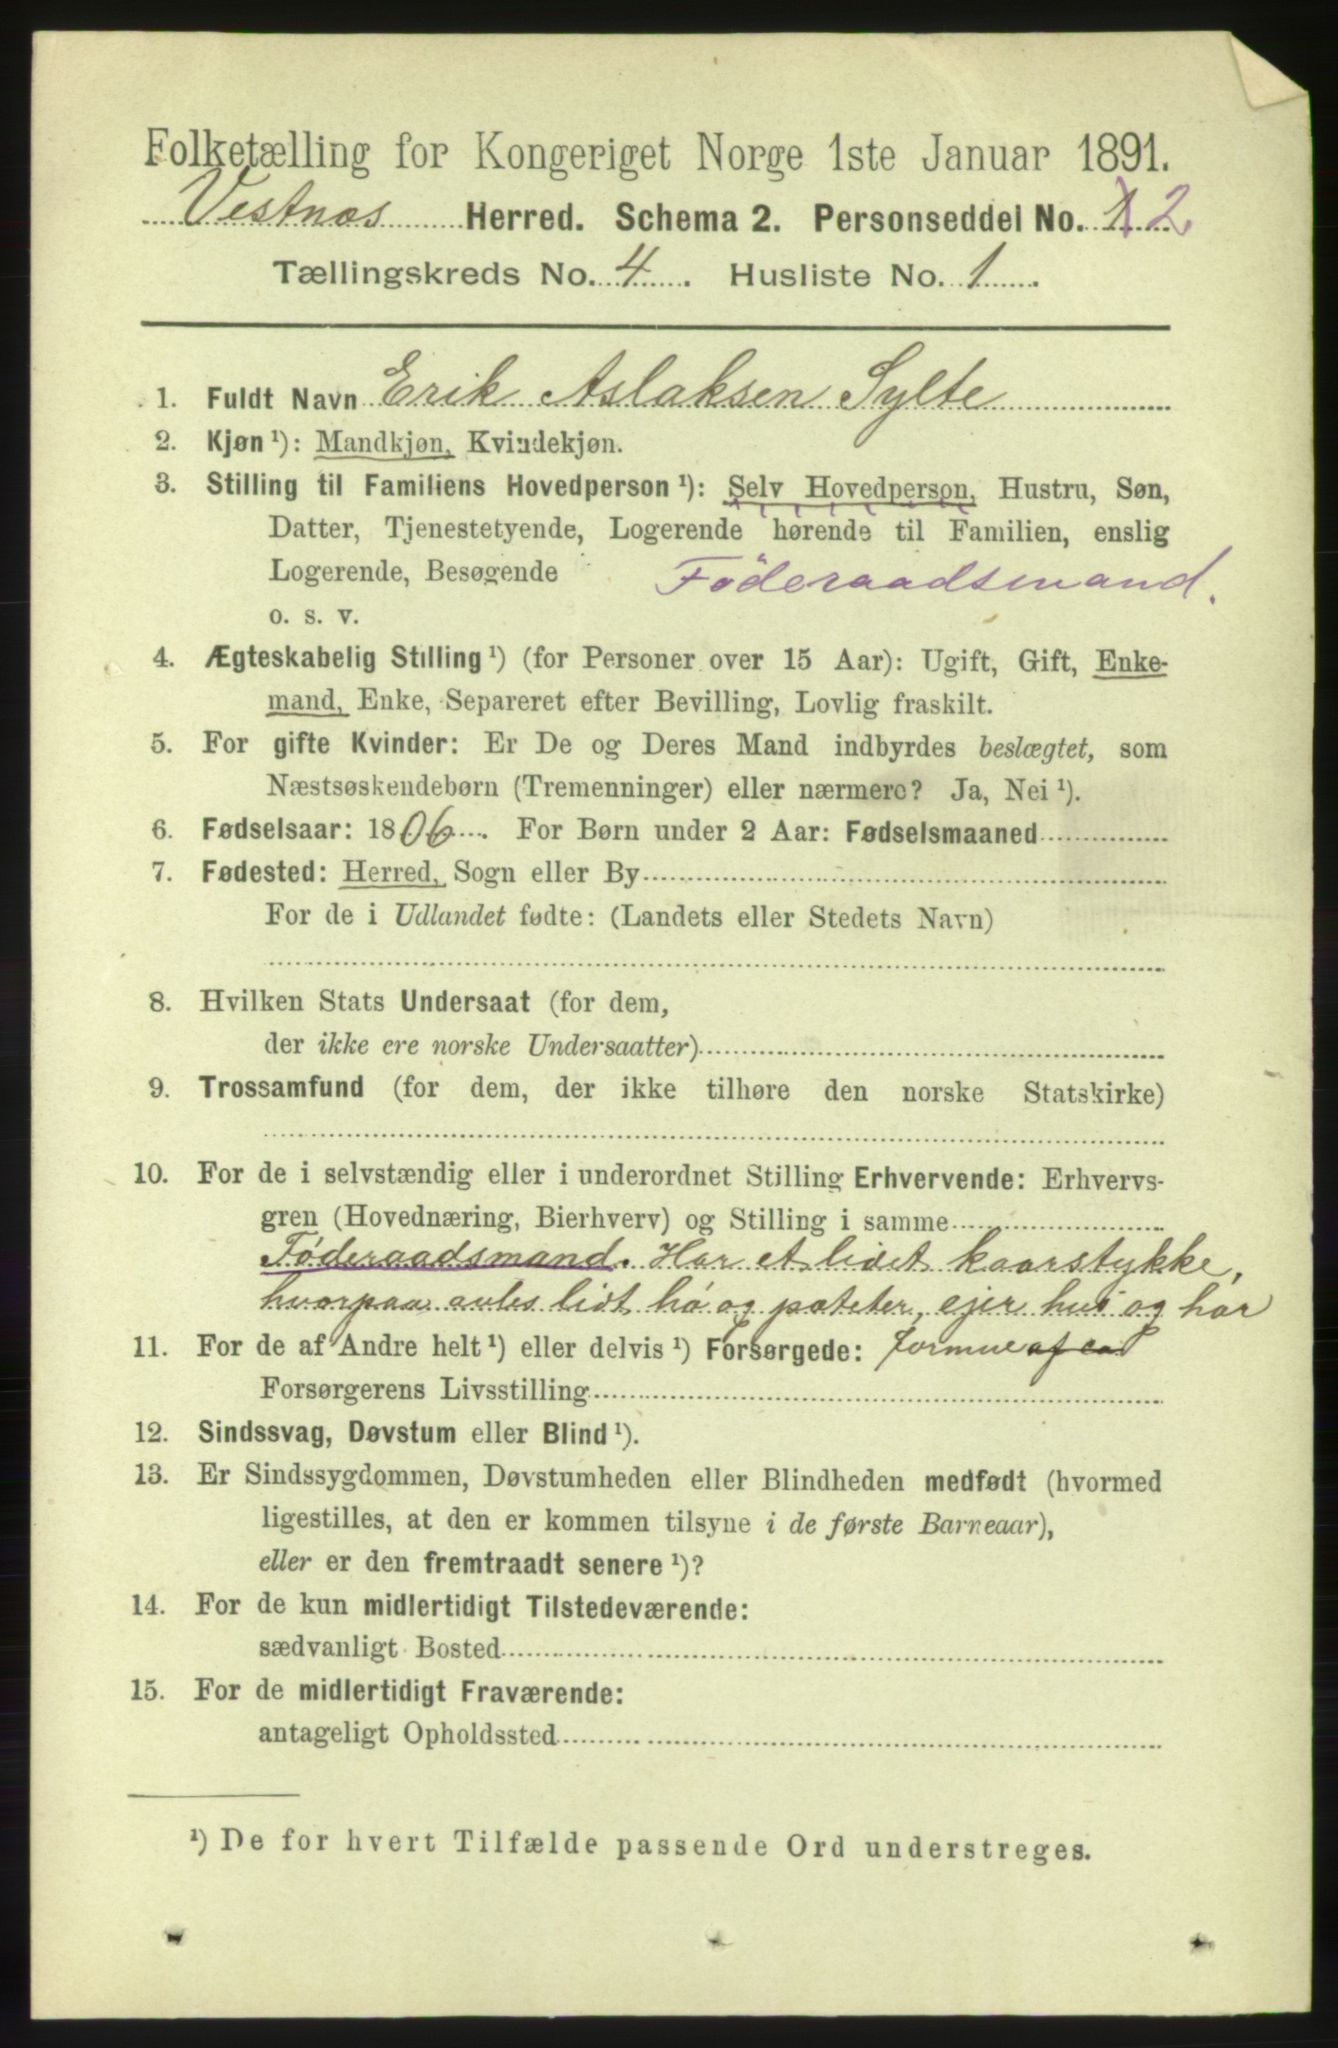 Folketælling for Kongeriget Norge 1ste Januar 1891.
Vestnæs Herred. Schema 2. Personseddel No. 1 2
Tællingskreds No. 4. Husliste No. 1.
1. Fuldt Navn Erik Aslaksen Sylte
2. Kjøn ¹): Mandkjøn, Kvindekjøn.
3. Stilling til Familiens Hovedperson ¹): Selv Hovedperson, Hustru, Søn,
Datter, Tjenestetyende, Logerende hørende til Familien, enslig
Logerende, Besøgende Föderaadsmand.
o. s. v.
4. Ægteskabelig Stilling ¹) (for Personer over 15 Aar): Ugift, Gift, Enke-
mand, Enke, Separeret efter Bevilling, Lovlig fraskilt.
5. For gifte Kvinder: Er De og Deres Mand indbyrdes beslægtet, som
Næstsøskendebørn (Tremenninger) eller nærmere? Ja, Nei ¹).
6. Fødselsaar: 1806. For Børn under 2 Aar: Fødselsmaaned
7. Fødested: Herred, Sogn eller By
For de i Udlandet fødte: (Landets eller Stedets Navn)
8. Hvilken Stats Undersaat (for dem,
der ikke ere norske Undersaatter)
9. Trossamfund (for dem, der ikke tilhøre den norske Statskirke)
10. For de i selvstændig eller i underordnet Stilling Erhvervende: Erhvervs-
gren (Hovednæring, Bierhverv) og Stilling i samme
Föderaadsmand. Har et lidet kaarstykke,
hvorpaa avles lidt hö og poteter, ejer hus og har
11. For de af Andre helt ¹) eller delvis ¹) Forsørgede: formue af
Forsørgerens Livsstilling
12. Sindssvag, Døvstum eller Blind ¹).
13. Er Sindssygdommen, Døvstumheden eller Blindheden medfødt (hvormed
ligestilles, at den er kommen tilsyne i de første Barneaar),
eller er den fremtraadt senere ¹)?
14. For de kun midlertidigt Tilstedeværende:
sædvanligt Bosted
15. For de midlertidigt Fraværende:
antageligt Opholdssted
¹) De for hvert Tilfælde passende Ord understreges.